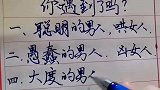 你遇到了吗?
一、聪明的男人,哄女人,
二、愚蠢的男人,斗女人
四、大度的男人